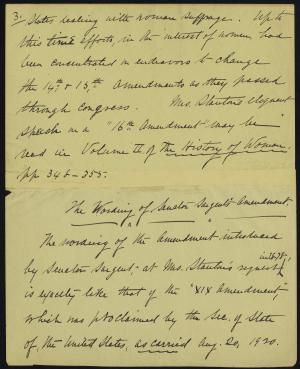 3. States dealing with woman suffrage. Up to
this time efforts, in the interest of women, had
been concentrated in endeavors to change
the 14th & 15th Amendments as they passed
through Congress. Mrs. Stanton's eloquent
speech on a "16th Amendment" may be
read in Volume II of the History of Woman.
pp. 348-355.
The Wording of Senator Sargent's Amendment.
The wording of the Amendment introduced
by Senator Sargent, at Mrs. Stanton's request,
in 1878,
is exactly like that of the "XIX Amendment,"
which was proclaimed by the Sec. of State
of the United States, as carried Aug. 20, 1920.